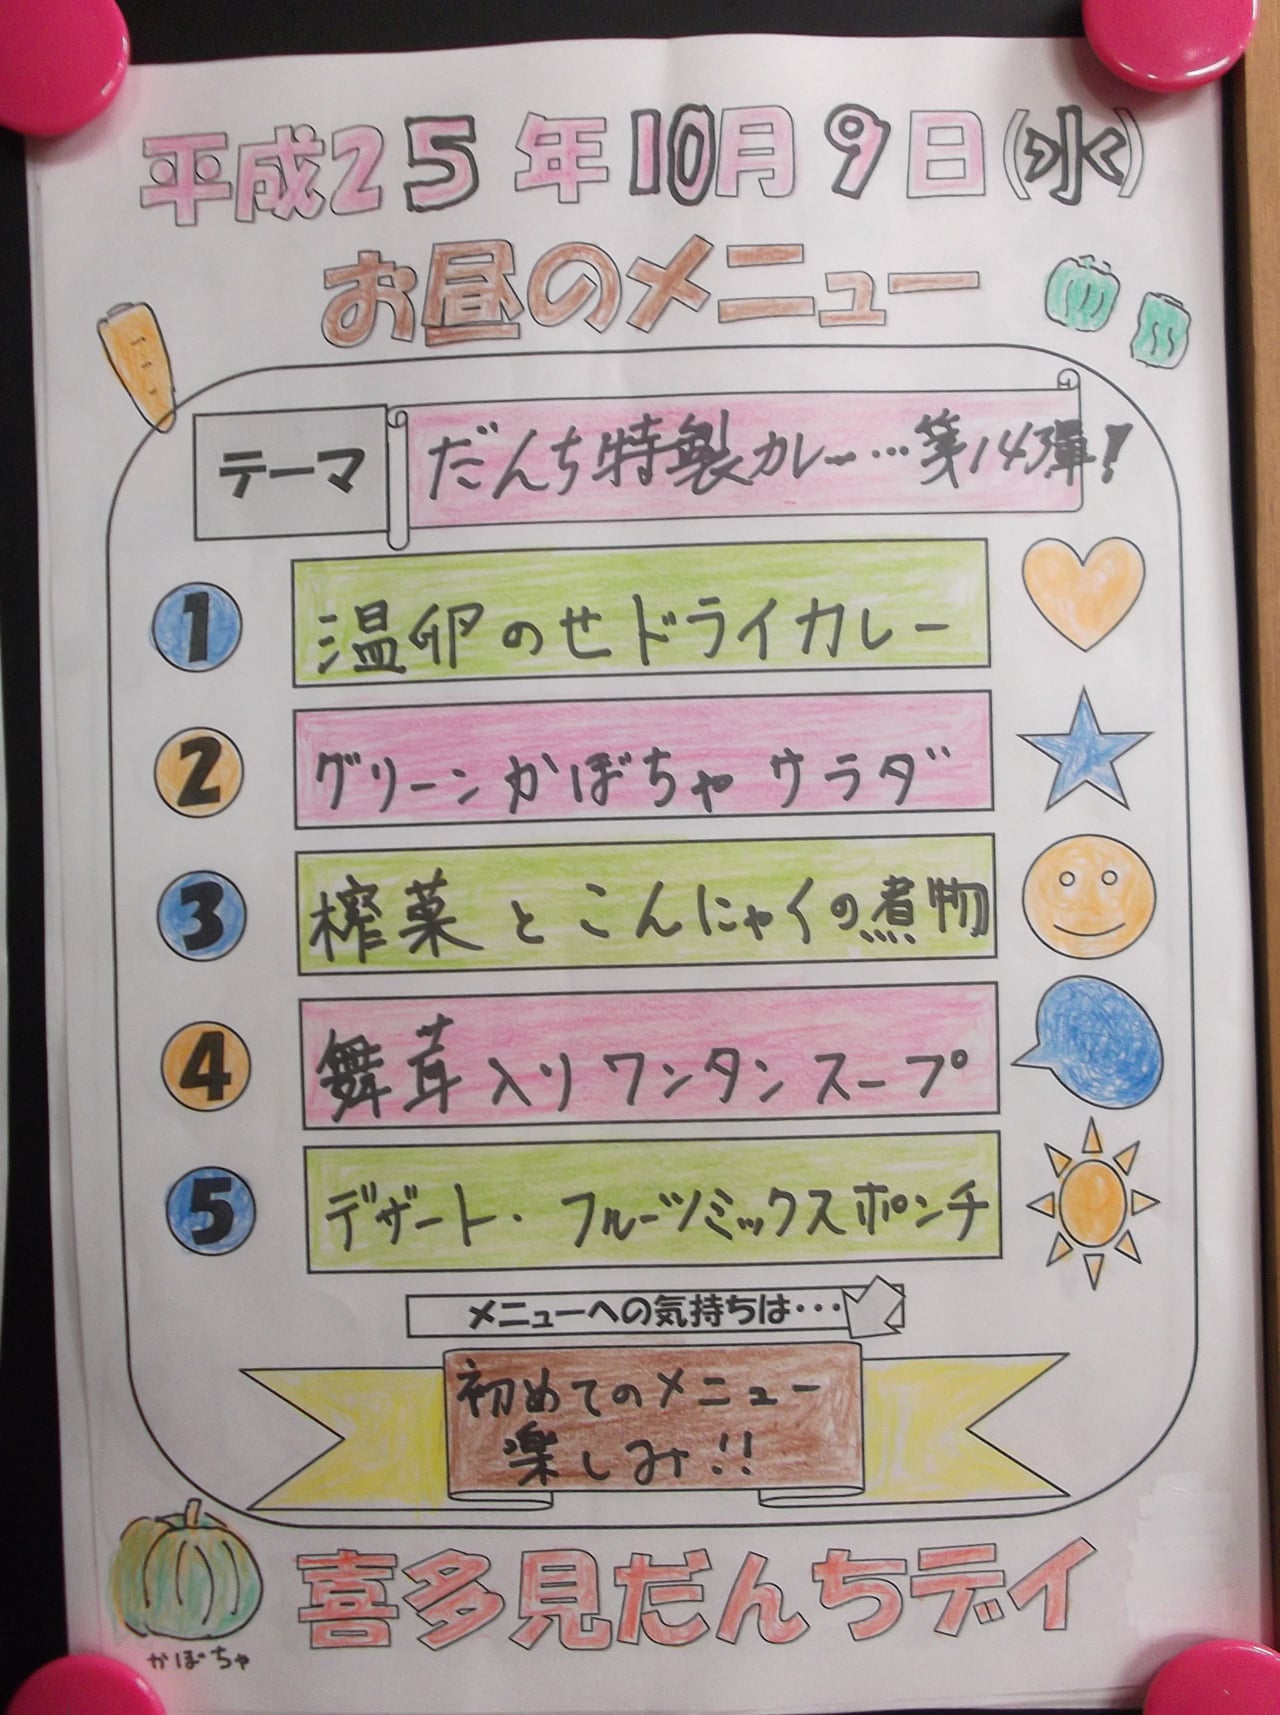 平成25年10月9日(水)
お昼のメニュー
テーマ
だんち特製カレー…第14弾!
1 温卵のせドライカレー
2 グリーンかぼちゃサラダ
3 搾菜とこんにゃくの煮物
4 舞茸入りワンタンスープ
5 デザート・フルーツミックスポンチ
メニューへの気持ちは・・・
初めてのメニュー
楽しみ!!
かぼちゃ
喜多見だんちデイ